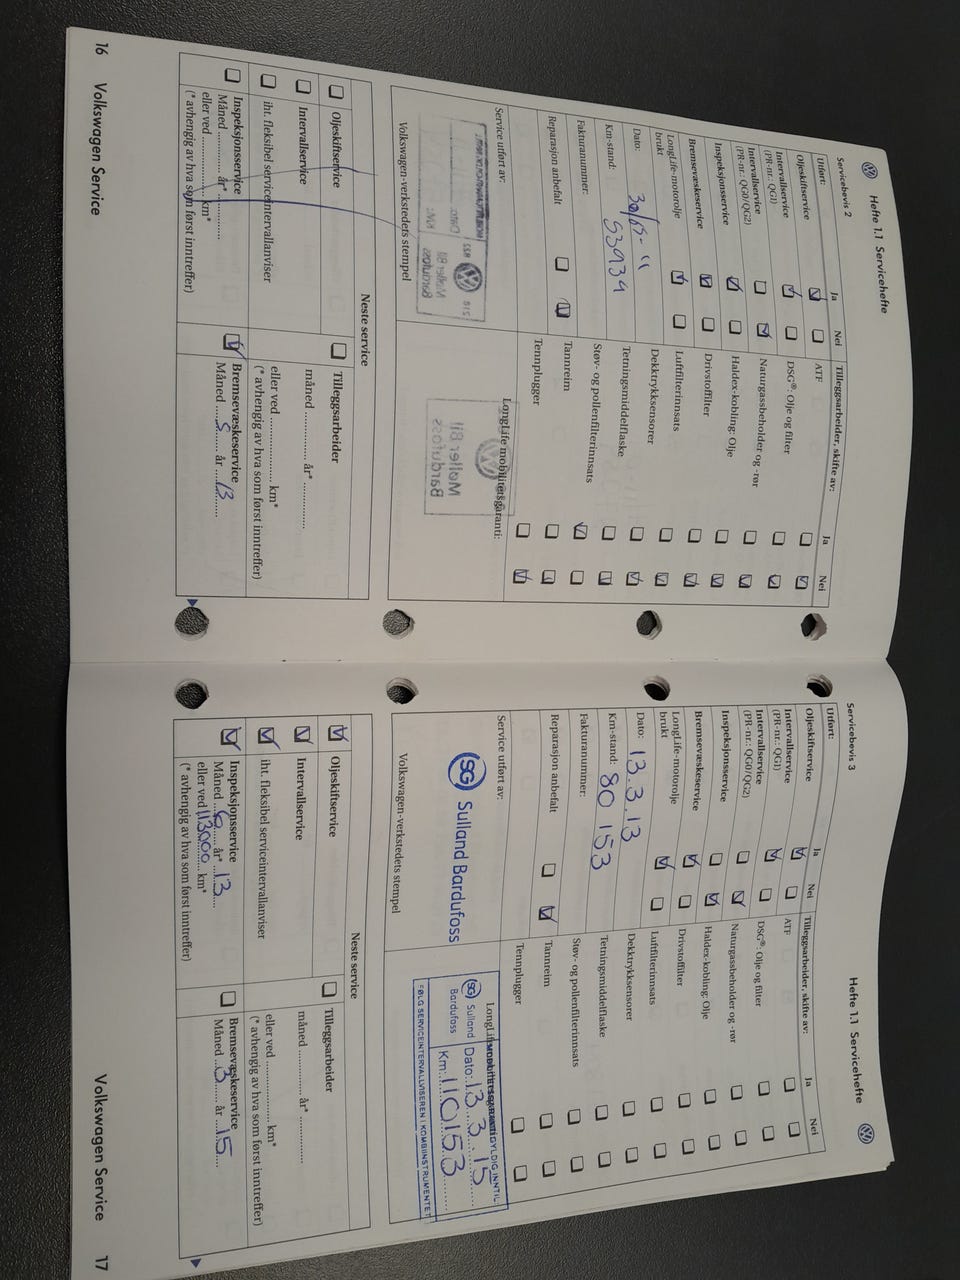 Hefte 1.1 Servicehefte
Servicebevis 2
Utført:
Ja
Nei
Tilleggsarbeider, skifte av:
Ja
Nei
Oljeskiftservice
ATF
Intervallservice
(PR-nr.: QG1)
DSG®: Olje og filter
Intervallservice
(PR-nr.: QG0/QG2)
Naturgassbeholder og -rør
Inspeksjonsservice
Haldex-kobling: Olje
Bremsevæskeservice
Drivstoffilter
LongLife-motorolje
brukt
Luftfilterinnsats
Dekktrykksensorer
Dato:
Tetningsmiddelflaske
Km-stand: 53934
Støv- og pollenfilterinnsats
Fakturanummer:
Tannreim
Reparasjon anbefalt
Tennplugger
Service utført av:
LongLife mobilitetsgaranti:
Møller Bil
Bardufoss
Møller Bil
Bardufoss
Volkswagen-verkstedets stempel
Neste service
Oljeskiftservice
Tilleggsarbeider
Intervallservice
måned ............ år* ............
iht. fleksibel serviceintervallanviser
eller ved ............ km*
(* avhengig av hva som først inntreffer)
Inspeksjonsservice
Måned ........ år* ............
eller ved ............ km*
(* avhengig av hva som først inntreffer)
Bremsevæskeservice
Måned ...5... år ...13...
16 Volkswagen Service
Hefte 1.1 Servicehefte
Servicebevis 3
Utført:
Ja
Nei
Tilleggsarbeider, skifte av:
Ja
Nei
Oljeskiftservice
ATF
Intervallservice
(PR-nr.: QG1)
DSG®: Olje og filter
Intervallservice
(PR-nr.: QG0/QG2)
Naturgassbeholder og -rør
Inspeksjonsservice
Haldex-kobling: Olje
Bremsevæskeservice
Drivstoffilter
LongLife-motorolje
brukt
Luftfilterinnsats
Dekktrykksensorer
Dato: 13.3.13
Tetningsmiddelflaske
Km-stand: 80 153
Støv- og pollenfilterinnsats
Fakturanummer:
Tannreim
Reparasjon anbefalt
Tennplugger
Service utført av:
SG Sulland Bardufoss
GYLDIG INNTIL:
SG Sulland
Bardufoss
Dato: 13.3.15
Km: 110153
FØLG SERVICEINTERVALLVISEREN I KOMBIINSTRUMENTET
Volkswagen-verkstedets stempel
Neste service
Oljeskiftservice
Tilleggsarbeider
Intervallservice
måned ............ år* ............
iht. fleksibel serviceintervallanviser
eller ved ............ km*
(* avhengig av hva som først inntreffer)
Inspeksjonsservice
Måned ...6... år* ...13...
eller ved 113000 km*
(* avhengig av hva som først inntreffer)
Bremsevæskeservice
Måned ...3... år ...15...
Volkswagen Service 17